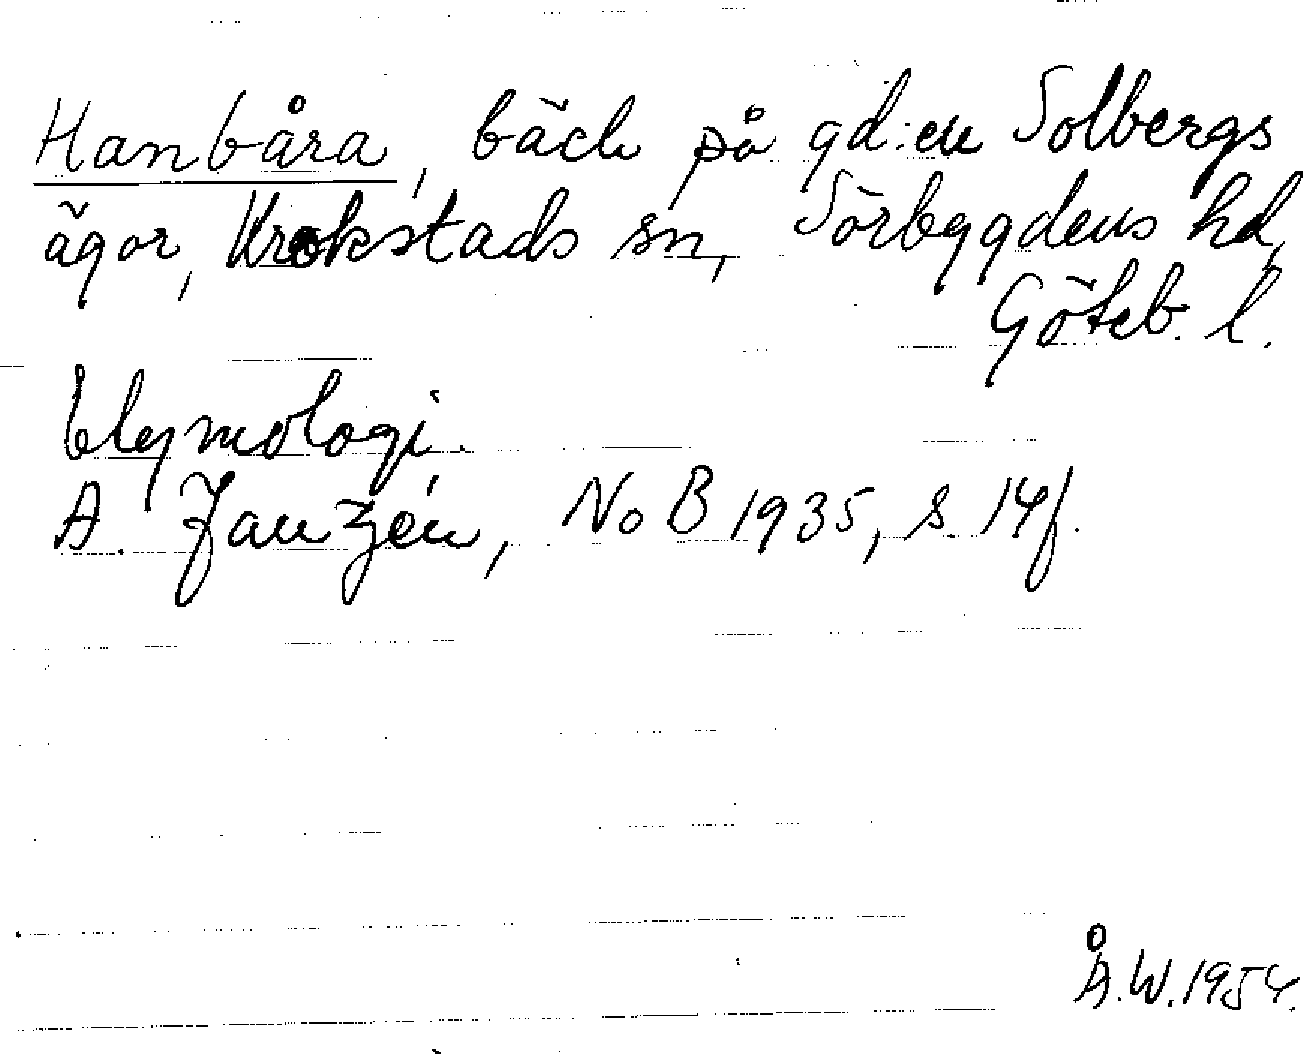 Hanbåra, bäck på gd:en Solbergs
ägor, Krokstads sn, Sörbygdens hd,
Göteb. l.
Etymologi.
A. Janzén, NoB 1935, s. 14f.
Å.W. 1954.